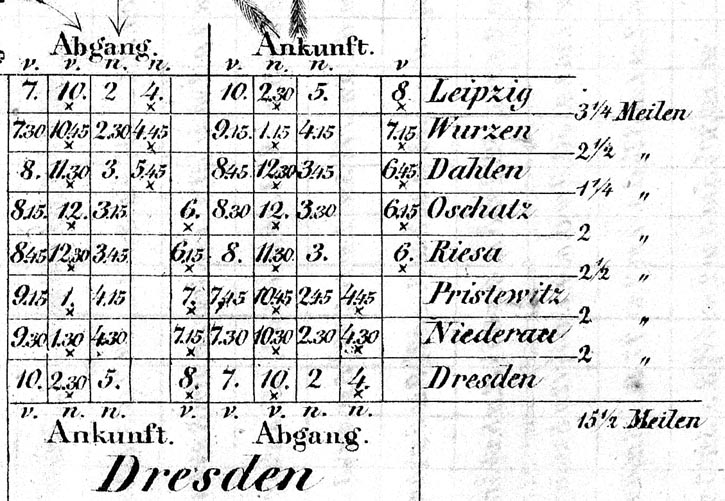 Abgang. Ankunft.
v. v. n. n. v. n. n. v
7. 10. 2 4. 10. 2.30 5. 8. Leipzig
3 1/4 Meilen
7.30 10.45 2.30 4.45 9.15. 1.15 4.15 7.15 Wurzen
2 1/2 "
8. 11.30 3. 5.45 8.45 12.30 3.45 6.45 Dahlen
1 1/4 "
8.15. 12. 3.15 6. 8.30 12. 3.30 6.15 Oschatz
2 "
8.45 12.30 3.45 6.15 8. 11.30 3. 6. Riesa
2 1/2 "
9.15 1. 4.15 7. 7.45 10.45 2.45 4.45 Pristewitz
2 "
9.30 1.30 4.30 7.15 7.30 10.30 2.30 4.30 Niederau
2 "
10. 2.30 5. 8. 7. 10. 2 4. Dresden
v. n. n. v. v. v. n. n.
15 1/2 Meilen
Ankunft. Abgang.
Dresden